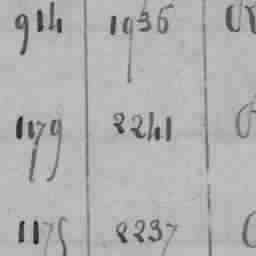 914 1936
1179 2241
1175 2237